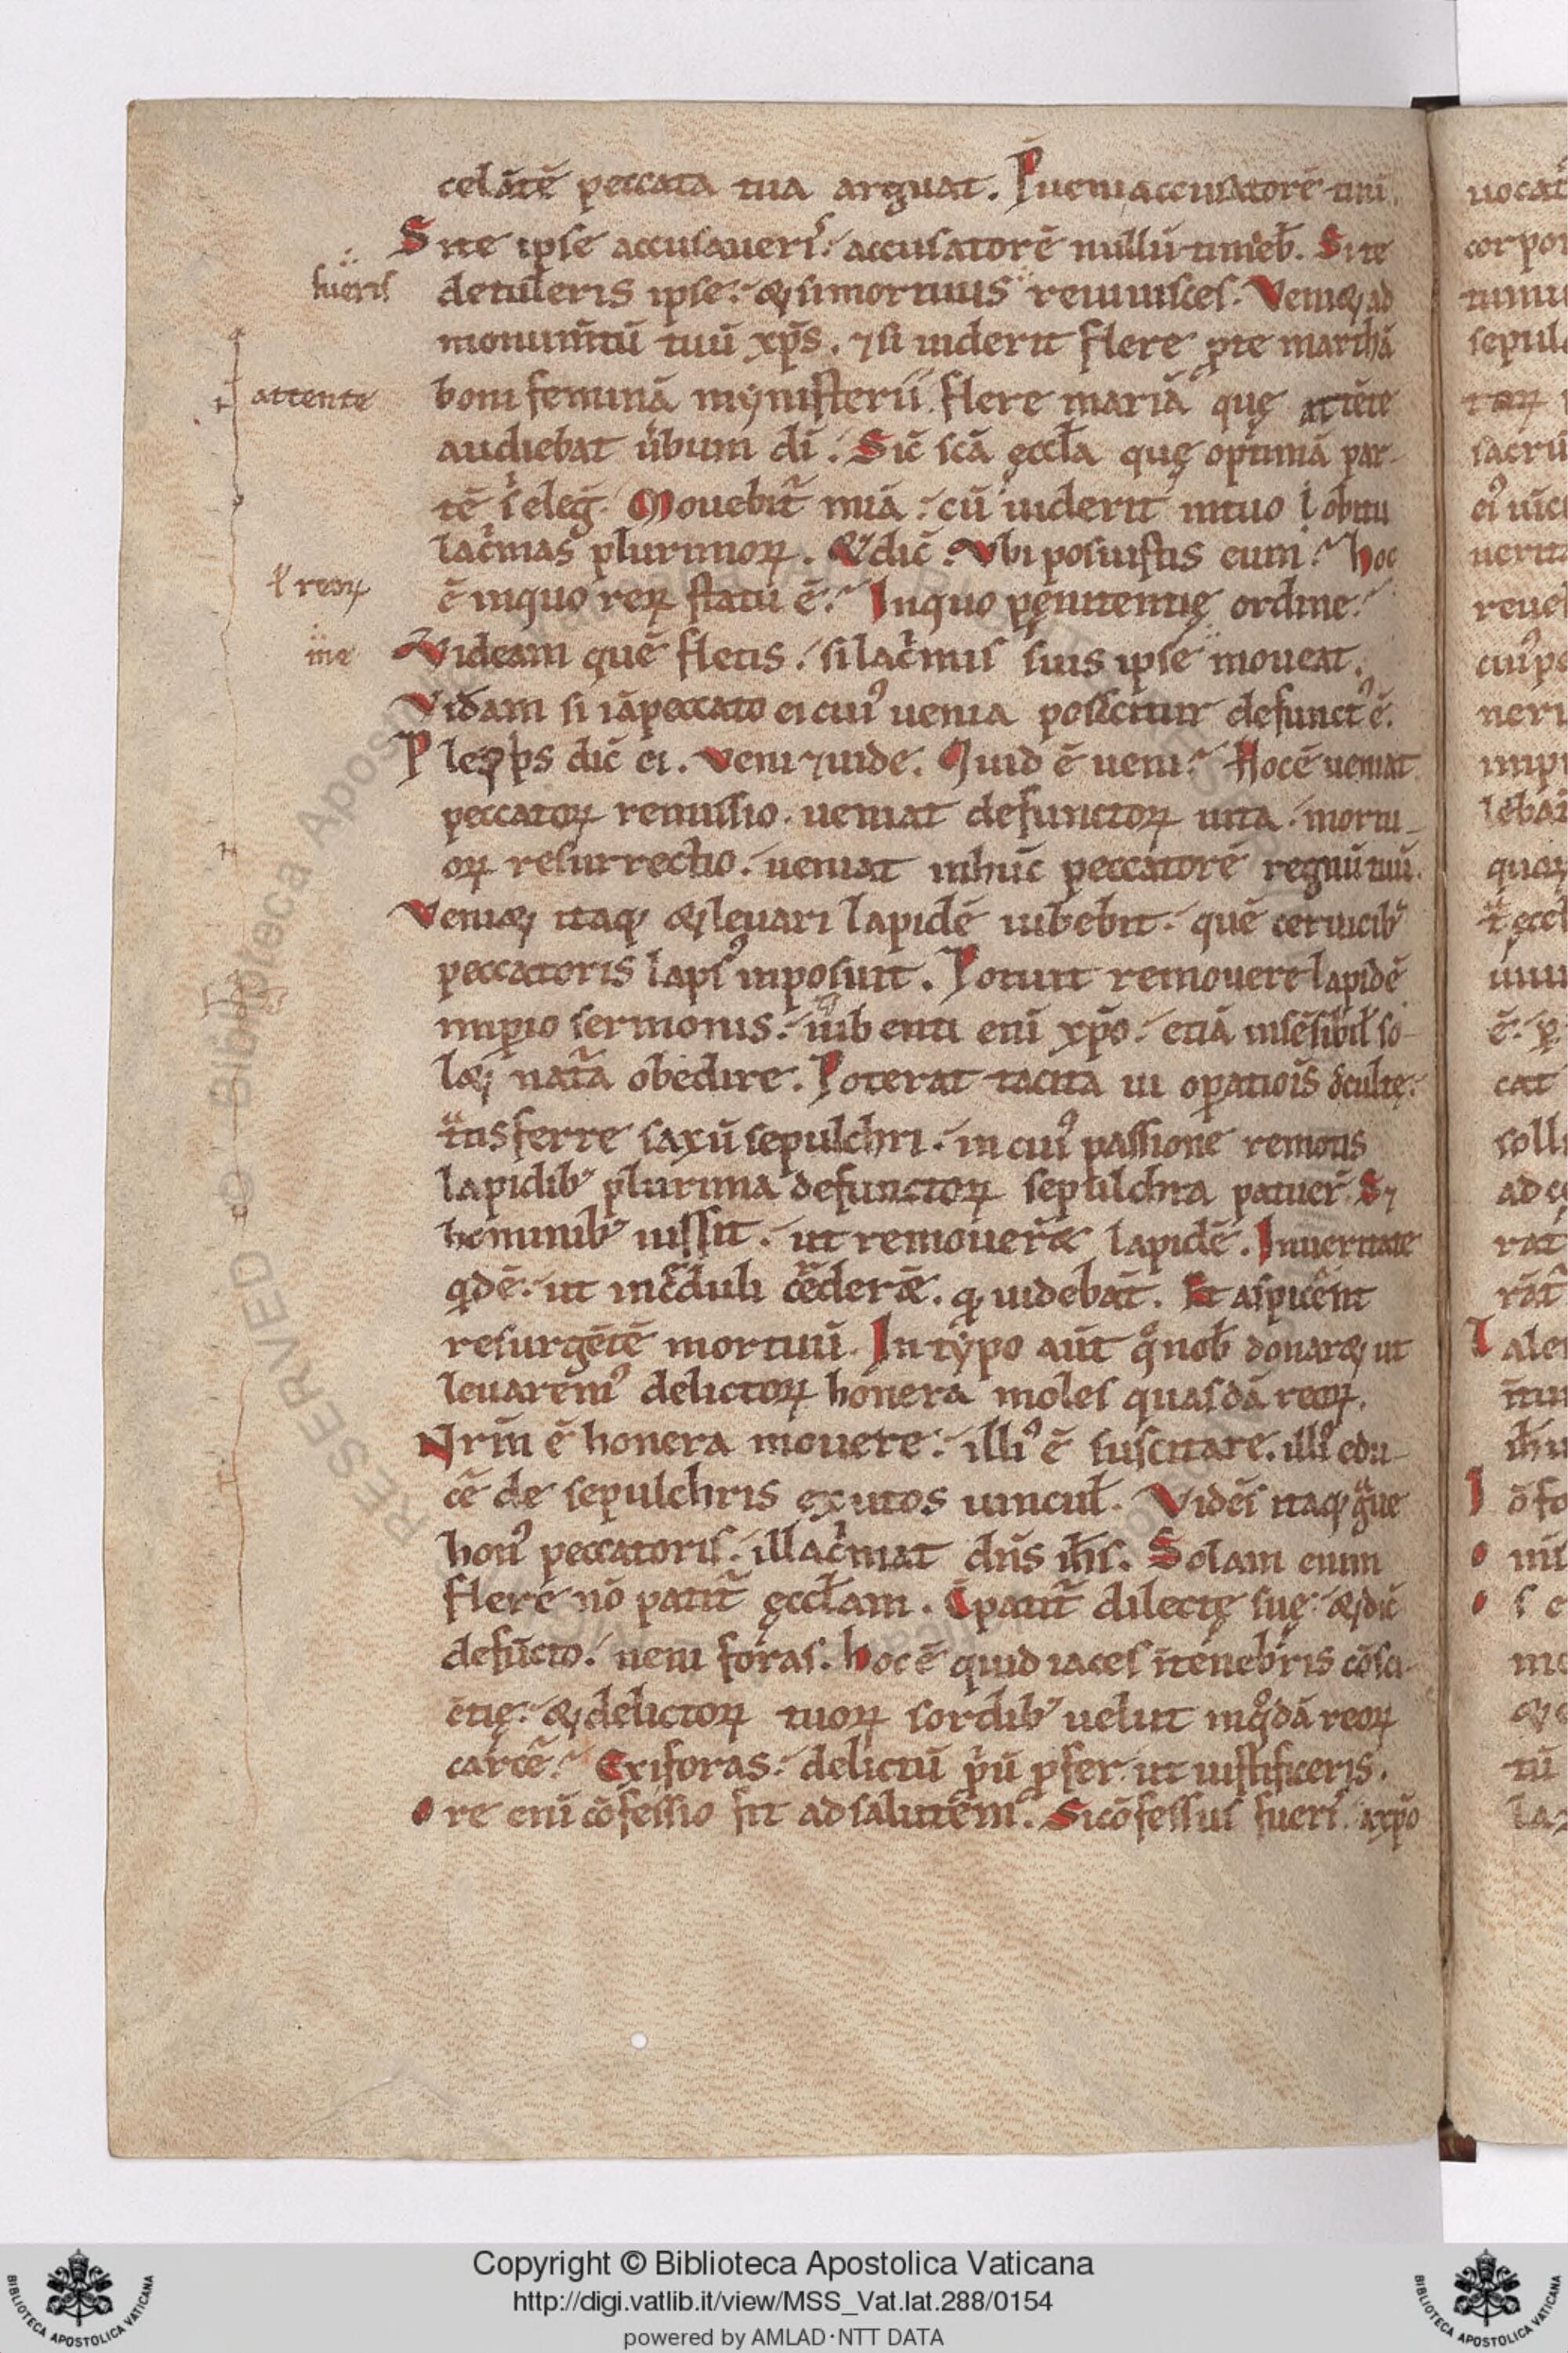 celātē peccata tua arguat. P̄ueni accusatorē tuū.
Si te ipse accusaueris᷒ accusatorē nullū timeb̄. Si te
fueris
detuleris ipse. & si mortuus reuiuisces. Veniet ad
monumtū tuū xp̄s. ⁊ si uiderit flere ꝑ te marthā
attente
boni feminā mynisterii. flere mariā que attēte
audiebat u̇bum di. Sic̄ scā ęccła quę optimā par-
tē s eleg. Mouebit᷑ miā. cū uiderit in tuo obitu
lac̍mas plurimoꝝ. & dic̄. Vbi posuistis eum? hoc
ł reoꝝ
ē in quo reoꝝ statu ē? In quo pęnitentię ordine?
me
Videam quē fletis. si lac̍mis suis ipse moueat.
Videam si iā peccato ei cui᷒ uenia poscitur defunct᷒ ē.
Plebs dic̄ ei. Veni ⁊ uide. Quid ē ueni? Hoc ē ueniat
peccatoꝝ remissio. ueniat defunctoꝝ uita. mortu-
oꝝ resurrectio. ueniat in hūc peccatorē regnū tuū.
Veniet itaq; & leuari lapidē iubebit. quē ceruicib᷒
peccatoris laps᷒ inposuit. Potuit remouere lapidē
impio sermonis. iubenti eni xp̄o. etiā insēsibił so-
let nat̄a obedire. Poterat tacita ui oꝑatiōis occultę.
tnsferre saxū sepulchri. in cui᷒ passione remotis
lapidib᷒ plurima defunctoꝝ sepulchra patuer̄. S;
hominib᷒ iussit. ut remouer̄et lapidē. In ueritate
qdē. ut inc̄duli c̄ederēt. q; uidebāt. Et aspicēnt
resurgētē mortuū. In typo aūt q̊ nob̄ donaret ut
leuarem᷒ delictoꝝ honera moles quasdā reoꝝ.
Nrm̄ ē honera mouere. illi᷒ ē suscitare. illi᷒ edu-
cē de sepulchris exutos uincuł. Vidēs itaq; g̊ue
hon᷒ peccatoris. illac̍mat dn̄s ih̄s. Solam enim
flere nō patit᷑ ęccłam. C̄patit᷑ dilectę suę. & dic̄
defūcto. ueni foras. hoc ē quid iaces ī tenebris cōsci-
ētię. & delictoꝝ tuoꝝ sordib᷒ uelut in q̊dā reoꝝ
carcē? Exi foras. delictū p̍ū ꝓfer ut iustificeris.
Ore enī cōfessio fit ad salutem. Si cōfessus fueris. a xp̄o
Copyright © Biblioteca Apostolica Vaticana
http://digi.vatlib.it/view/MSS_Vat.lat.288/0154
powered by AMLAD·NTT DATA